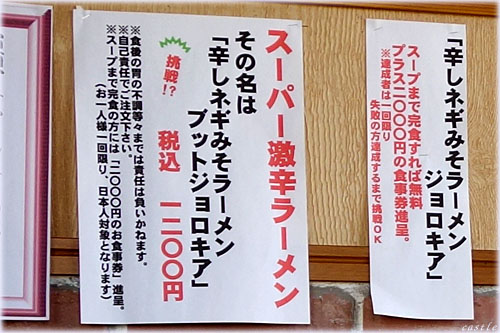 スーパー激辛ラーメン
その名は
「辛しネギみそラーメン
ブットジョロキア」
挑戦!?
税込 一二〇〇円
※食後の胃の不調等々までは責任は負いかねます。
※自己責任でご注文下さい。
※スープまで完食の方には「二〇〇〇円のお食事券」進呈。
(お一人様一回限り、日本人対象となります)
「辛しネギみそラーメン
ジョロキア」
スープまで完食すれば無料
プラス二〇〇〇円の食事券進呈。
※達成者は一回限り
失敗の方達成するまで挑戦OK
castle